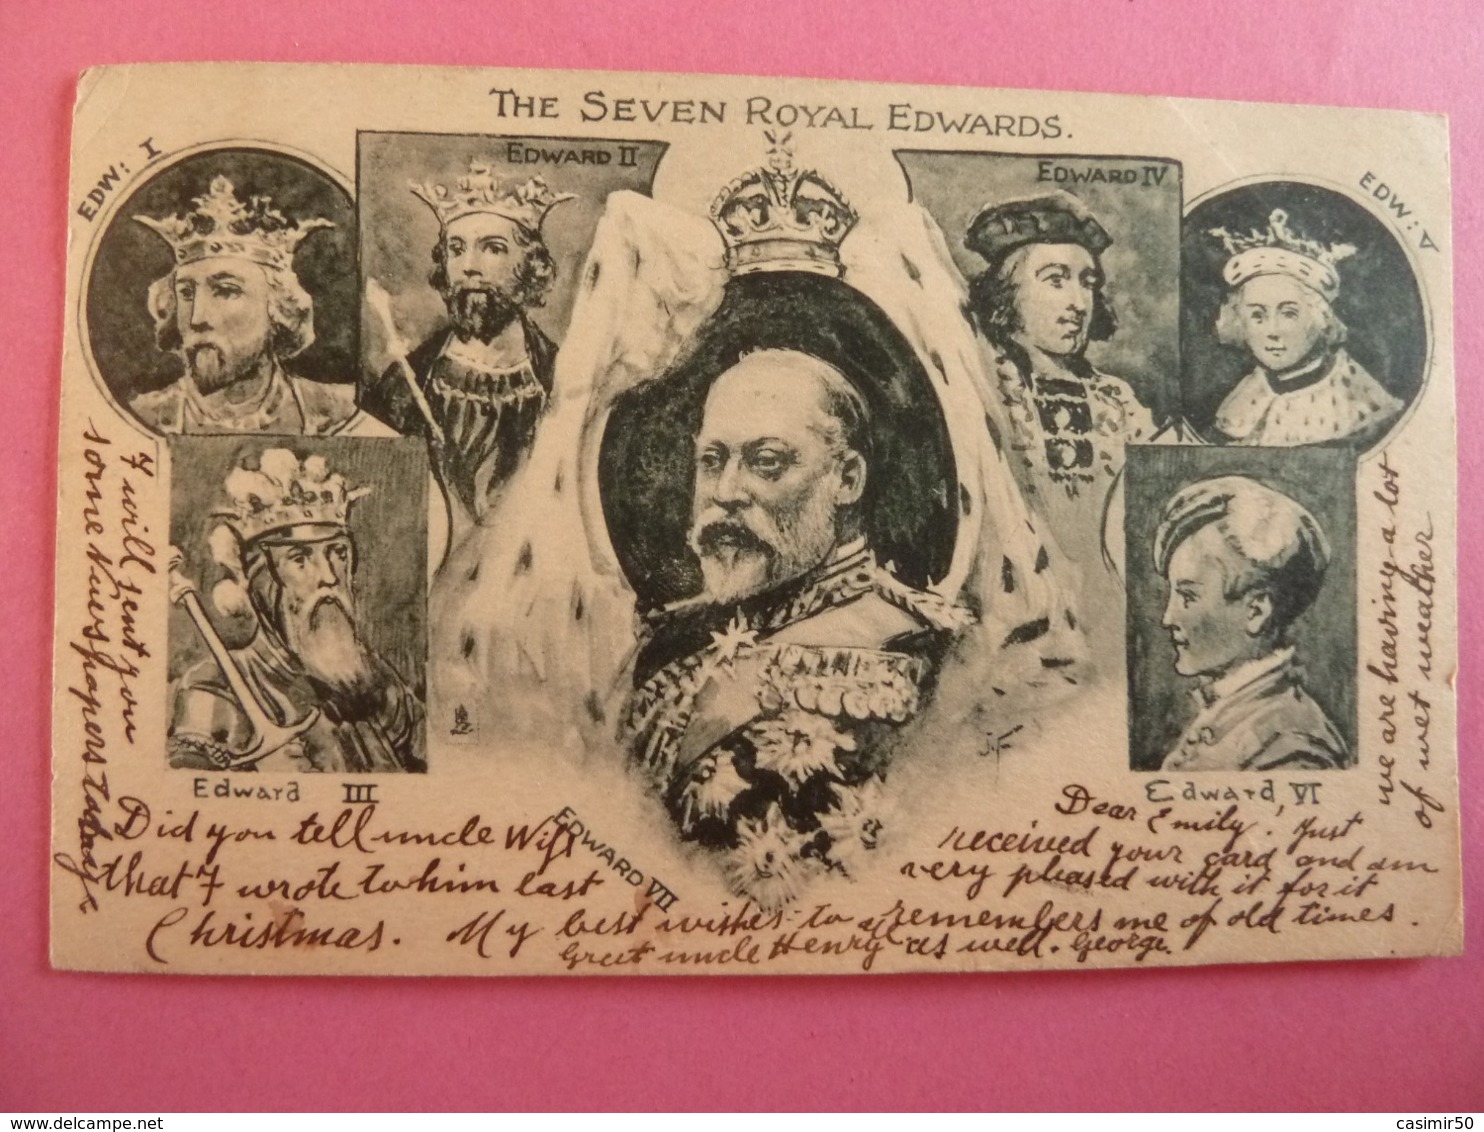 THE SEVEN ROYAL EDWARDS.
EDW: I
EDWARD II
EDWARD IV
EDW: V
Edward III
EDWARD VII
Edward VI
Dear Emily! Just
received your card and am
very pleased with it for it
remembers me of old times.
we are having a lot
of wet weather
Did you tell uncle
that I wrote to him last
Christmas. My best wishes to
Greet uncle Henry as well. George.
I will sent you
some Newspapers
delcampe.net
casimir50